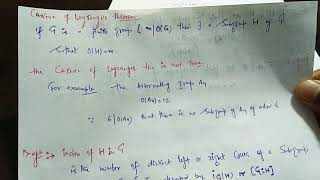 Converse of Lagranges theorem
If G is a finite group & m|O(G) then ∃ a Subgroup H of G
S.that O(H)=m
the Converse of Lagranges thm is not True.
For example :- The Alternating Group A4
O(A4)=12
∵ 6|O(A4) But there is no Subgroup of A4 of order 6
Def:→ index of H in G
is the number of distinct left or right Cosets of a Subgroup
denoted by iG(H) or [G:H]